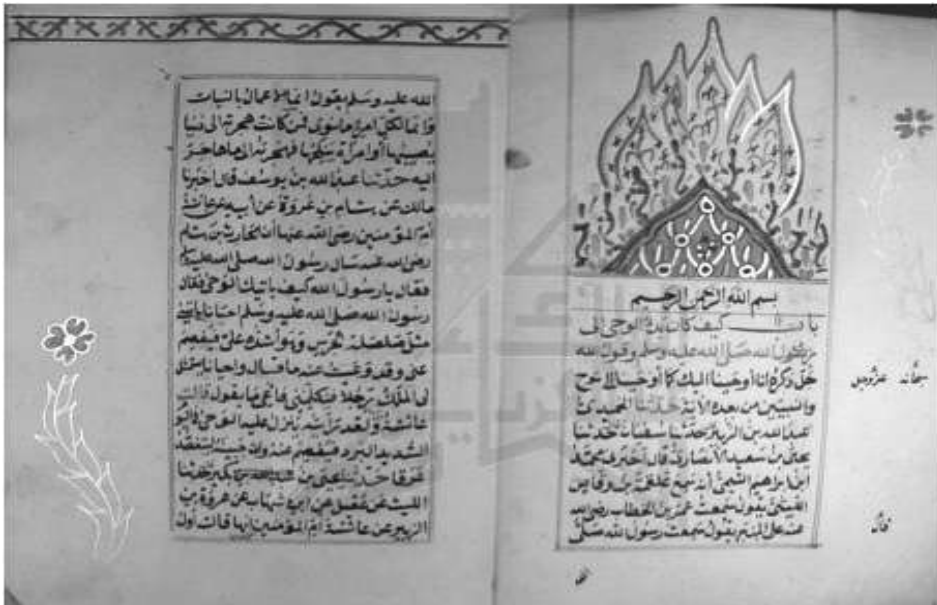 بسم الله الرحمن الرحيم
باب كيف كان بدء الوحي إلى
رسول الله صلى الله عليه وسلم وقول الله
جل ذكره انا أوحينا اليك كما أوحينا الى نوح
والنبيين من بعده الآية حدثنا الحميدي
عبد الله بن الزبير حدثنا سفيان حدثنا
يحيى بن سعيد الأنصاري قال أخبرني محمد
ابن ابراهيم التيمي أنه سمع علقمة بن وقاص
الليثي يقول سمعت عمر بن الخطاب رضي الله
عنه على المنبر يقول سمعت رسول الله صلى
سبحانه عزوجل
قال
الله
الله عليه وسلم يقول انما الأعمال بالنيات
وانما لكل امرئ ما نوى فمن كانت هجرته الى دنيا
يصيبها أو امرأة ينكحها فهجرته الى ما هاجر
اليه حدثنا عبد الله بن يوسف قال اخبرنا
مالك عن هشام بن عروة عن أبيه عن عائشة
أم المؤمنين رضي الله عنها أن الحارث بن هشام
رضي الله عنه سأل رسول الله صلى الله عليه وسلم
فقال يا رسول الله كيف يأتيك الوحي فقال
رسول الله صلى الله عليه وسلم احيانا يأتيني
مثل صلصلة الجرس وهو أشده علي فيفصم
عني وقد وعيت عنه ما قال واحيانا يتمثل
لي الملك رجلا فيكلمني فأعي ما يقول قالت
عائشة ولقد رأيته ينزل عليه الوحي في اليوم
الشديد البرد فيفصم عنه وان جبينه ليتفصد
عرقا حدثنا يحيى بن بكير حدثنا
الليث عن عقيل عن ابن شهاب عن عروة بن
الزبير عن عائشة أم المؤمنين انها قالت أول